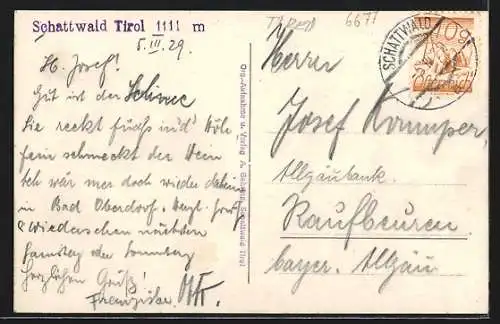 Schattwald Tirol 1111 m
5. III. 29.
Josef!
Gut ist der Schnee
Sie reckt
fein schmeckt der Wein
Ich wär mer doch wieder daheim
in Bad Oberdorf.
Wiedersehen nächsten
Samstag oder Sonntag
herzlichen Gruß!
Franziska
Org.-Aufnahme u. Verlag A. Schattwald Tirol
6671
SCHATTWALD
10g
Herrn
Josef
Allgäubank,
Kaufbeuren
bayer. Allgäu